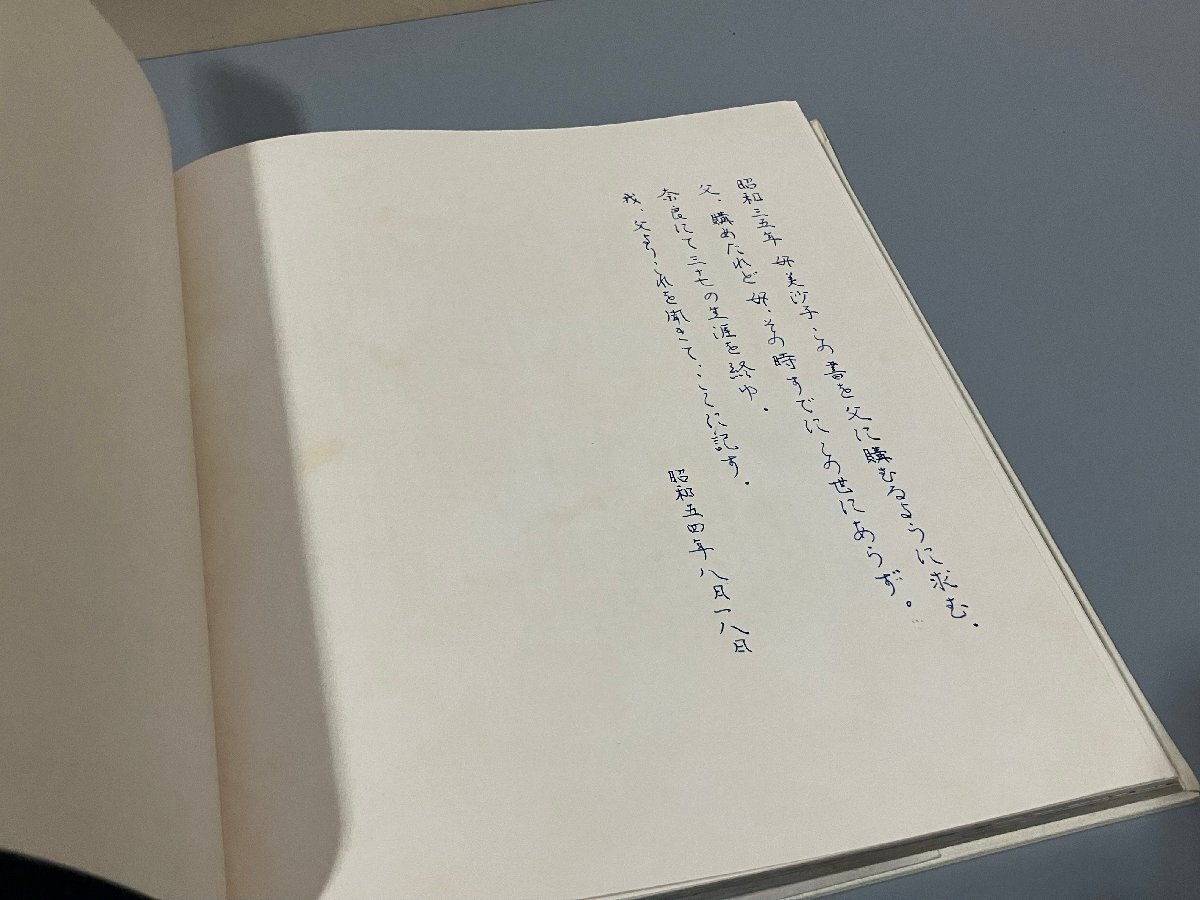 昭和三五年 母美沙子この書を父に購むるように求む.
父、購めたれど母、その時すでにこの世にあらず。
奈良にて三十七の生涯を終ゆ.
我、父よりこれを聞きて、ここに記す.
昭和五四年八月一八日